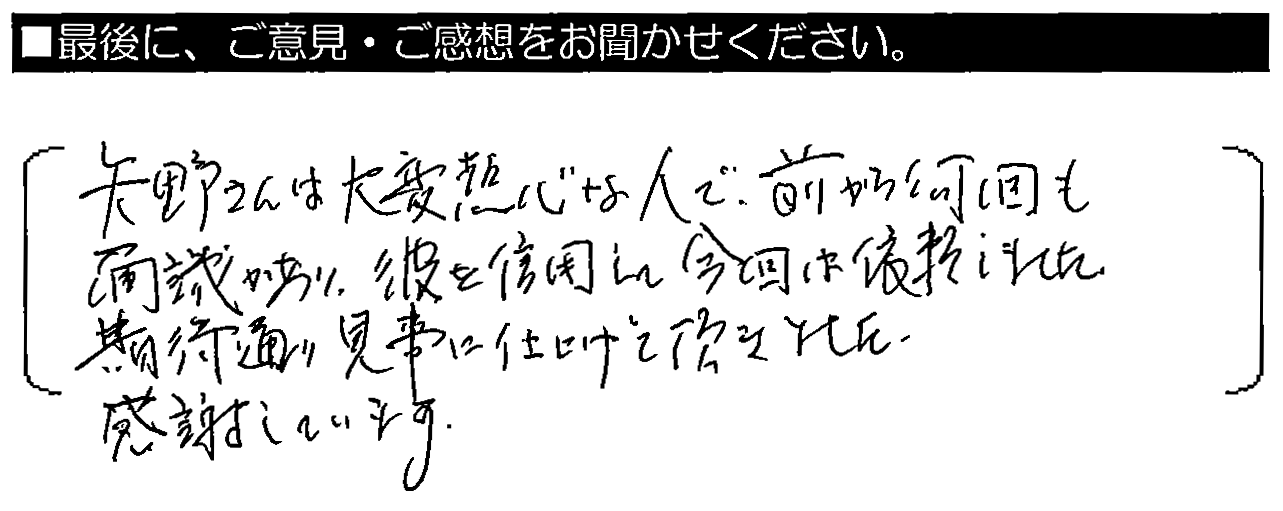 ■最後に、ご意見・ご感想をお聞かせください。
矢野さんは大変熱心な人で、前から何回も
面識があり、彼を信用して今回は依頼しました。
期待通り見事に仕上げて頂きました。
感謝しています。